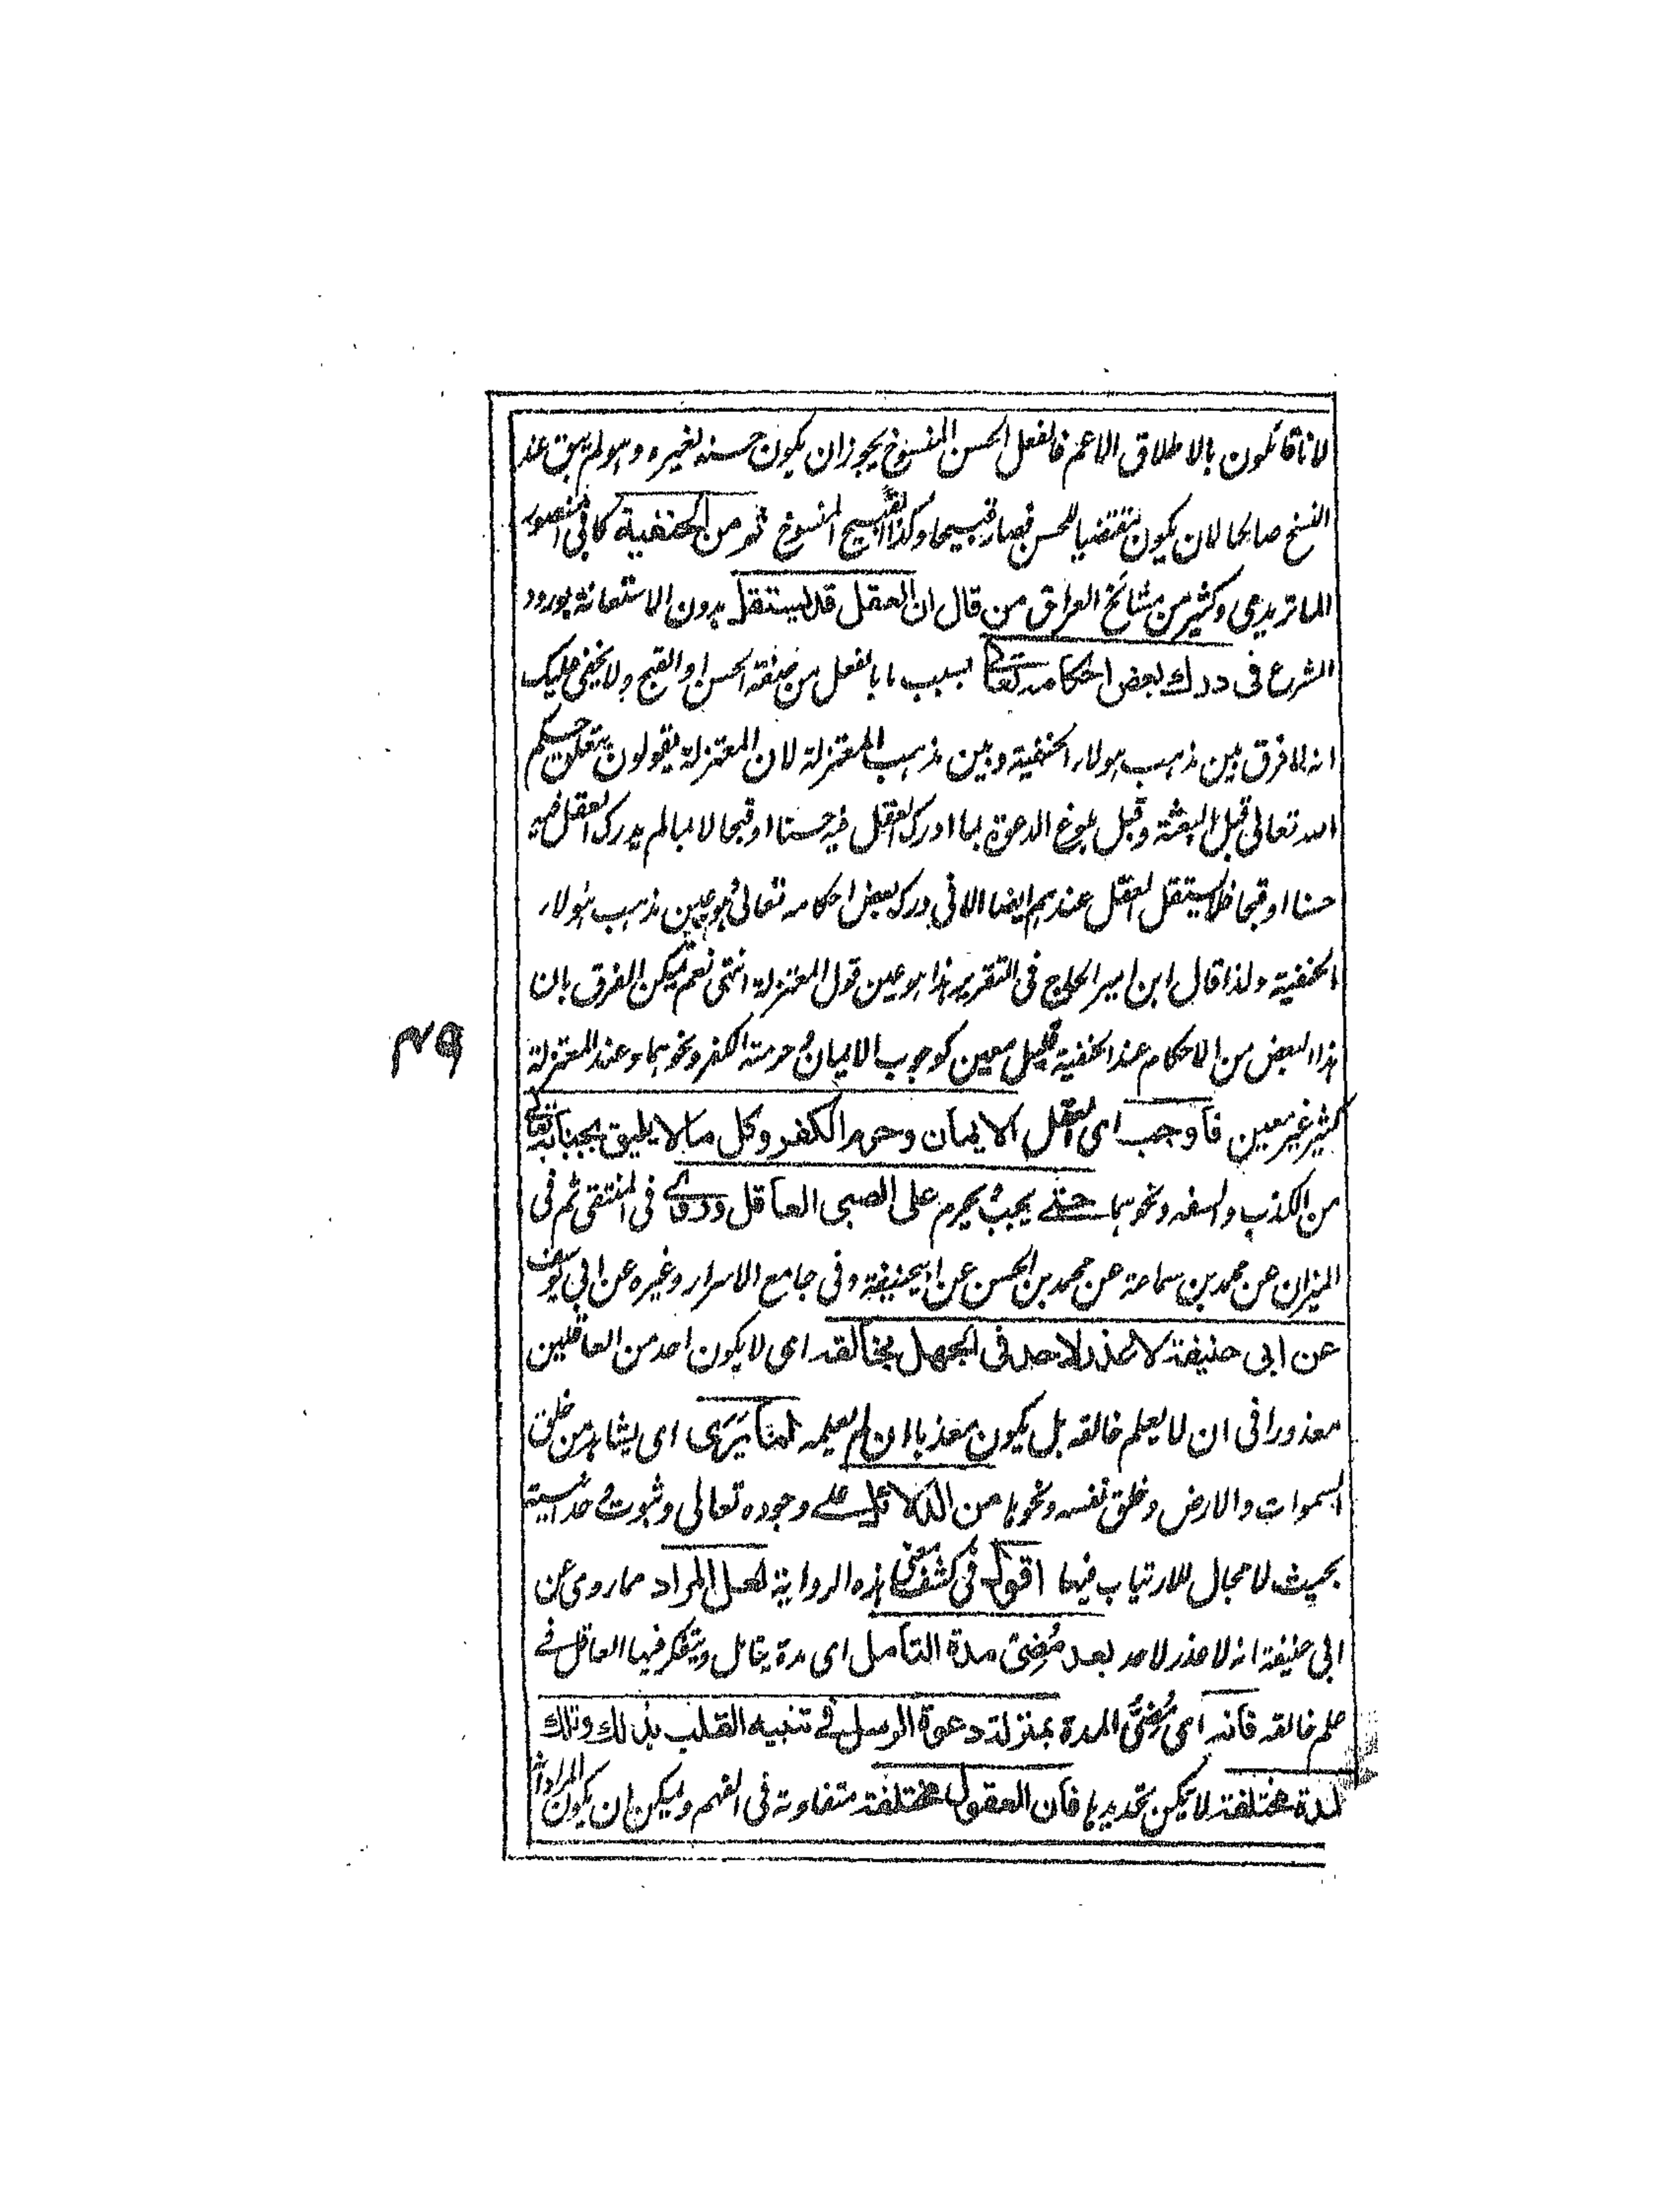 لاناقائلون بالاطلاق الاعم فالفعل الحسن المنسوخ يجوزان يكون حسنه لغيره وهو لم يبق عند
النسخ صالحا لان يكون مقتضيا للحسن فصار قبيحا وكذا القبيح المنسوخ ثم من الحنفية كابى المنصور
الماتريدى وكثير من مشائخ العراق من قال ان العقل قد يستقل بدون الاستعانة بورود
الشرع فى درك بعض احكامه تعالى بسبب ما بالفعل من صفة الحسن او القبح ولا يخفى عليك
انه لا فرق بين مذهب هولاء الحنفية وبين مذهب المعتزلة لان المعتزلة يقولون بتعلق حكم
الله تعالى قبل البعثة وقبل بلوغ الدعوة بما ادرك العقل فيه حسنا او قبحا لا بما لم يدرك العقل فيه
حسنا او قبحا فلا يستقل العقل عندهم ايضا الا فى درك بعض احكامه تعالى فهو عين مذهب هولاء
الحنفية ولذا قال ابن امير الحاج فى التقرير هذا هو عين قول المعتزلة انتهى نعم يمكن الفرق بان
هذا البعض من الاحكام عند الحنفية قليل معين كوجوب الايمان وحرمة الكفر ونحوهما وعند المعتزلة
كثير غير معين فاوجب اى العقل الايمان وحرم الكفر وكل ما لا يليق بجنابه تعالى
من الكذب والسفه ونحوهما حتى يجب ويحرم على الصبى العاقل وروى فى المنتقى ثم فى
الميزان عن محمد بن سماعة عن محمد بن الحسن عن ابيحنيفة وفى جامع الاسرار وغيره عن ابى يوسف
عن ابى حنيفة لا عذر لاحد فى الجهل بخالقه اى لا يكون احد من العاقلين
معذورا فى ان لا يعلم خالقه بل يكون معذبا ان لم يعلمه لما يَرَى اى يشاهد من خلق
السموات والارض وخلق نفسه ونحوها من الدلائل على وجوده تعالى وثبوت وحدانيته
بحيث لا مجال للارتياب فيها اقول فى كشف معنى هذه الرواية لعل المراد مما روى عن
ابى حنيفة انه لا عذر لاحد بعد مُضِىّ مدة التامل اى مدة يتامل ويتفكر فيها العاقل فى
علم خالقه فانه اى مُضِىُّ المدة بمنزلة دعوة الرسل فى تنبيه القلب بذلك وتلك
المدة مختلفة لا يمكن تحديدها فان العقول مختلفة متفاوتة فى الفهم ويمكن ان يكون المراد
٤٩